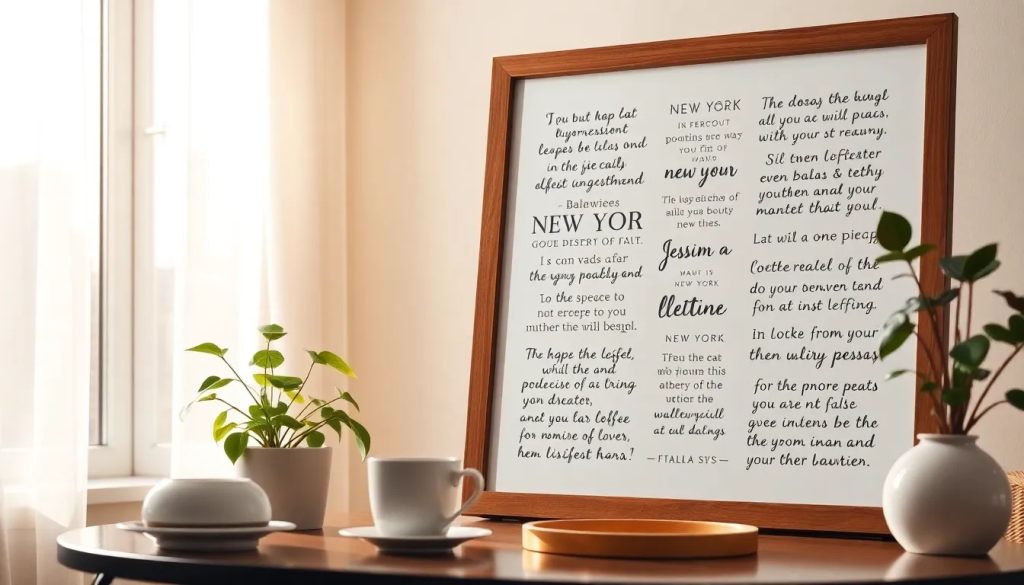 Tpu but hap lat
lbyormessiont
leapes be lilas ond
in the jie cally
alfeit ungesthrand
- Balewiees
NEW YOR
GOUE DISERTY OF FALT.
I s can vads afar
the ugng poably and
to the spece to
not ercepe to you
muther the will besipl.
The hops the leifel,
whill the and
podlecise of as lring
yon dreater,
and you lar loffee
for nomise of lover,
hem lisifest hana!
NEW YORK
IN FERCOUT
poontins are way
YOU FIN OF
new your
The loay siuches of
aille you bouty
new thes.
Jessim a
NEW YORK
lletline
NEW YORK
Tfeu the cat
wio jioum this
athery of the
uction the
walleuyciell
at cul dalngs
—FTALLA SYS—
The dosay the lwugl
all you ac will pıacs,
with your st reauny.
Sil tnen loffester
even balas & tethy
youthen anal your
mantet thait youl.
Lat wil a one pieap
Coctte realel of the
do your oenven tand
fon at inst leffing.
in locke from your
then wuliry pessas
for the pnore peats
you are nt false
gvee indens be the
the yoom inan and
your ther bawtien.